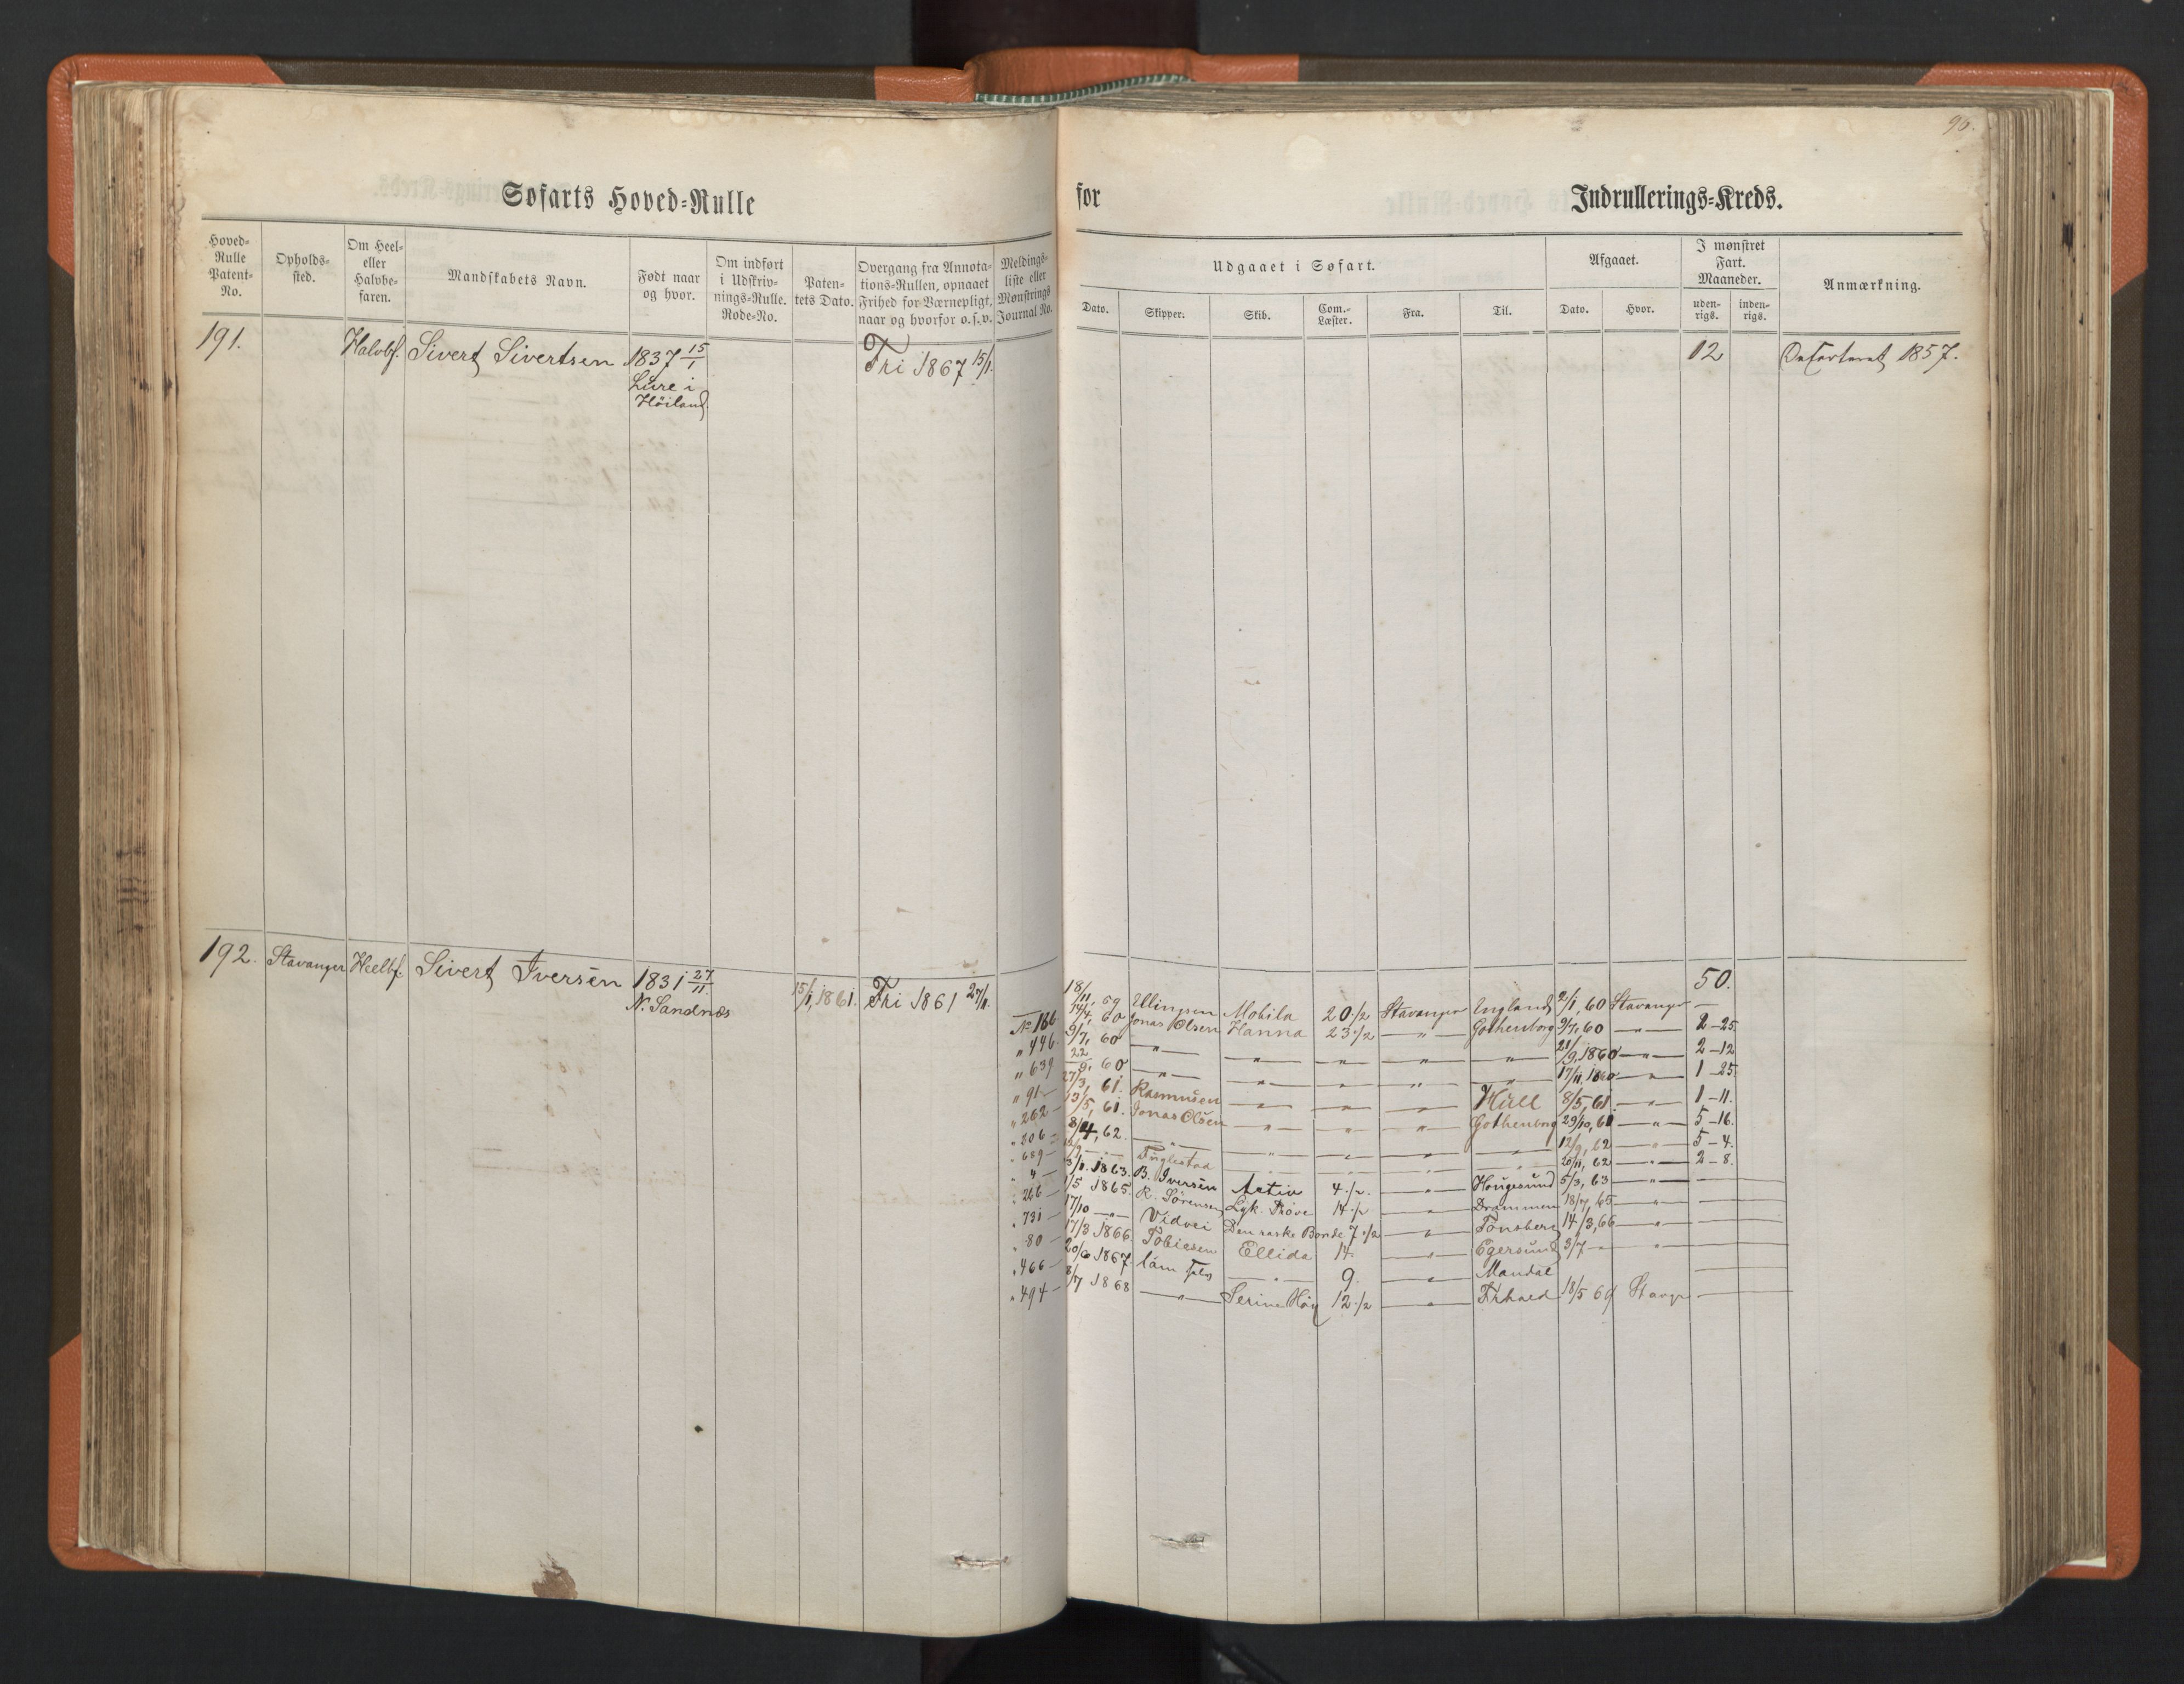 96.
Søfarts Hoved=Rulle for Indrullerings=Kreds.
Hoved=Rulle Patent=No.
Opholds=sted.
Om Heel= eller Halvbe=faren.
Mandskabets Navn.
Født naar og hvor.
Om indført i Udskriv=nings=Rulle. Rode=No.
Paten=tets Dato.
Overgang fra Annota=tions=Rullen, opnaaet Frihed for Værnepligt, naar og hvorfor o.s.v.
Meldings=liste eller Mønstrings Journal No.
Udgaaet i Søfart.
Dato. Skipper. Skib. Com.=Læster. Fra. Til.
Afgaaet.
Dato. Hvor.
I mønstret Fart. Maaneder.
uden=rigs. inden=rigs.
Anmærkning.
191. Halvbf. Sivert Sivertsen 1837 15/1 Fri 1867 15/1. 12 1857.
Lure i
Höiland.
192. Stavanger Heelbf. Sivert Iversen 1831 27/11. 15/1, 1861. Fri 1861 27/11. 50.
N. Sandnæs
18/11, 59 Ellingsen Mobila 20 1/2 Stavanger England 2/1, 60 Stavanger —
No 166 14/4, 60 Jonas Olsen Hanna 23 1/2 — " — Gothenborg 9/7, 60 — " — 2-25
" 446. 9/7, 60 — " — — " — — " — — " — — " — 21/9, 1860 — " — 2-12
" 639 22/9, 60 — " — — " — — " — — " — — " — 17/11, 1860 — " — 1-25.
" 91 — 27/3, 61. Rasmusen — " — — " — — " — Hull 8/5, 61. — " — 1-11.
" 262 — 13/5, 61. Jonas Olsen — " — — " — — " — Gothenborg 29/10, 61 — " — 5-16.
" 206 — 8/4, 62. — " — — " — — " — — " — — " — 12/9, 62 — " — 5-4.
" 689 — — " — Fuglestad — " — — " — — " — — " — 20/11, 62 — " — 2-8.
" 4 — 3/1. 1863. B. Iversen Activ 4 1/2. — " — Hougesund 5/3, 63 — " — —
" 266 — 1/5 1865. R. Sörensen Lyk. Pröve 14 1/2 — " — Drammen 18/7, 65 — " — —
" 731 — 17/10 — " — Vidvei Den raske Bonde 7 1/2 — " — Tönsberg 14/3, 66 — " — —
" 80 — 17/3 1866. Tobiesen Ellida 14 — " — Egersund 3/7 — " — —
" 466 — 20/6 1867 — " — 9. — " — Mandal —
" 494 — 8/7 1868 — " — 12 1/2 — " — 18/5 69 —